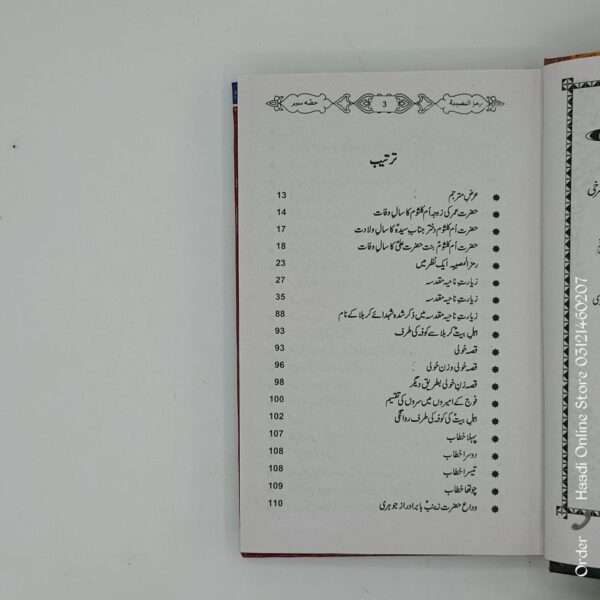 رمز المصیبة 3 حصّہ سوم
ترتیب
عرض مترجم 13
حضرت عمر کی زوجہ اُم کلثوم کا سال وفات 14
حضرت اُم کلثوم دختر جناب سیدہؑ کا سال ولادت 17
حضرت اُم کلثوم بنت حضرت علیؑ کا سال وفات 18
رمز المصیبہ ایک نظر میں 23
زیارت ناحیہ مقدسہ 27
زیارت ناحیہ مقدسہ 35
زیارت ناحیہ مقدسہ میں ذکر شدہ شہدائے کربلا کے نام 88
اہل بیتؑ کربلا سے کوفہ کی طرف 93
قصہ خولی 93
قصہ خولی و زن خولی 96
قصہ زن خولی بطریق دیگر 98
فوج کے امیروں میں سروں کی تقسیم 100
اہل بیتؑ کی کوفہ کی طرف روانگی 102
پہلا خطاب 107
دوسرا خطاب 108
تیسرا خطاب 108
چوتھا خطاب 109
وداع حضرت زینبؑ با برادر از جوہری 110
Order Haadi Online Store 03121460207